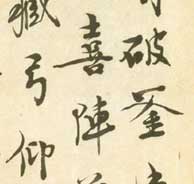 破釜
喜陣
藏弓仰